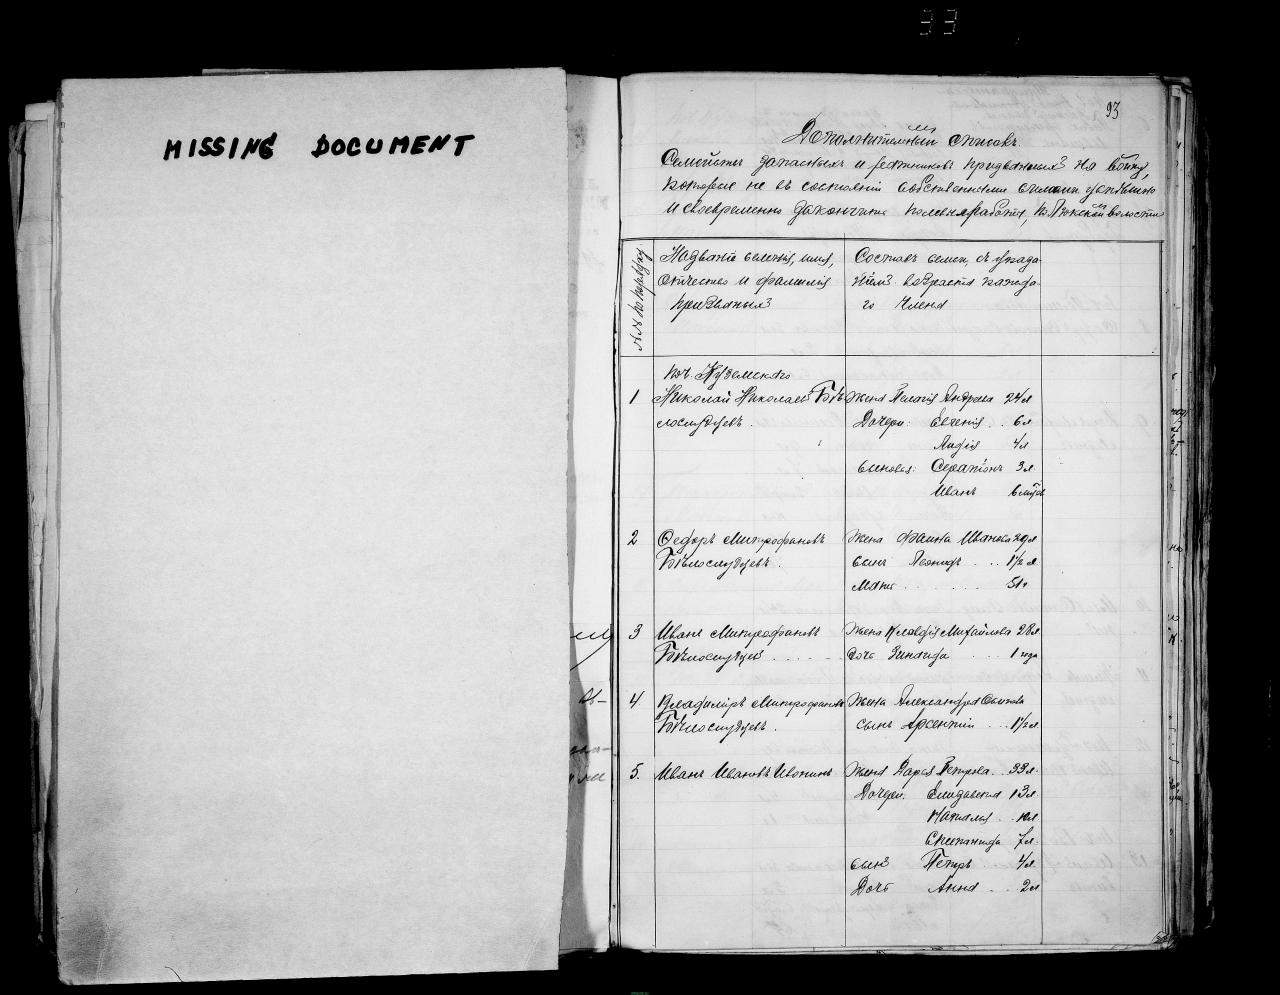 93
MISSING DOCUMENT
93
Дополнительный списокъ
Семействъ запасныхъ и ратниковъ призванныхъ на войну,
которые не въ состоянiи собственными силами успѣшно
и своевременно закончить полевыя работы, по волости
№№ по порядку
Названiе селенiя, имя,
отчество и фамилiя
призванныхъ
Составъ семьи, съ указа
нiемъ возраста каждо
го члена
поч.
1 Николай Николаевъ Бѣ
лослудцевъ.
Жена Пелагiя Андреева 24 л
Дочери: Евгенiя .. 6 л
Лидiя 4 л
сыновья: Серапiонъ 3 л.
Иванъ 6 мѣсяц
2 Федоръ Митрофановъ
Бѣлослудцевъ.
Жена Фаина Иванова 29 л
сынъ Леонидъ ... 1½ л
Мать ...... 51 г
3 Иванъ Митрофановъ
Бѣлослудцевъ .....
Жена Клавдiя Михайлова 28 л.
Дочь Зинаида 1 года
4 Владимiръ Митрофановъ
Бѣлослудцевъ.
Жена Александра
сынъ Арсентiй ... 1½ л
5. Иванъ Ивановъ Ивонинъ
Жена Дарья Петрова .. 33 л.
Дочери: Елизавета 13 л.
Наталья ..
Степанида 7 л.
сынъ Петръ 4 л.
Дочь Анна ... 2 л